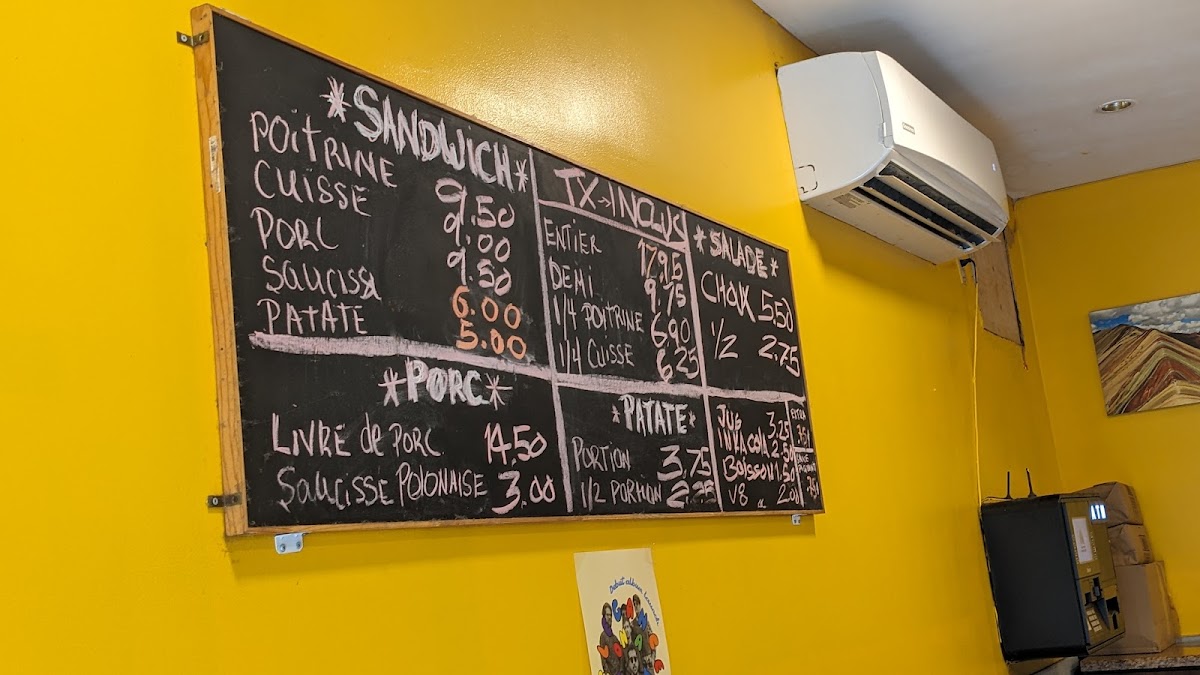 *SANDWICH*
POITRINE 9.50
CUISSE 9.00
PORC 9.50
SAUCISSE 6.00
PATATE 5.00
TX→INCLUS
ENTIER 17.95
DEMI 9.75
1/4 POITRINE 6.90
1/4 CUISSE 6.25
*SALADE*
CHOUX 5.50
1/2 2.75
*PORC*
LIVRE de PORC 14.50
SAUCISSE POLONAISE 3.00
*PATATE*
PORTION 3.75
1/2 PORTION 2.25
JUS 3.25
INCA COLA 2.50
BOISSON 1.50
V8 2.00
EXTRA
ATM